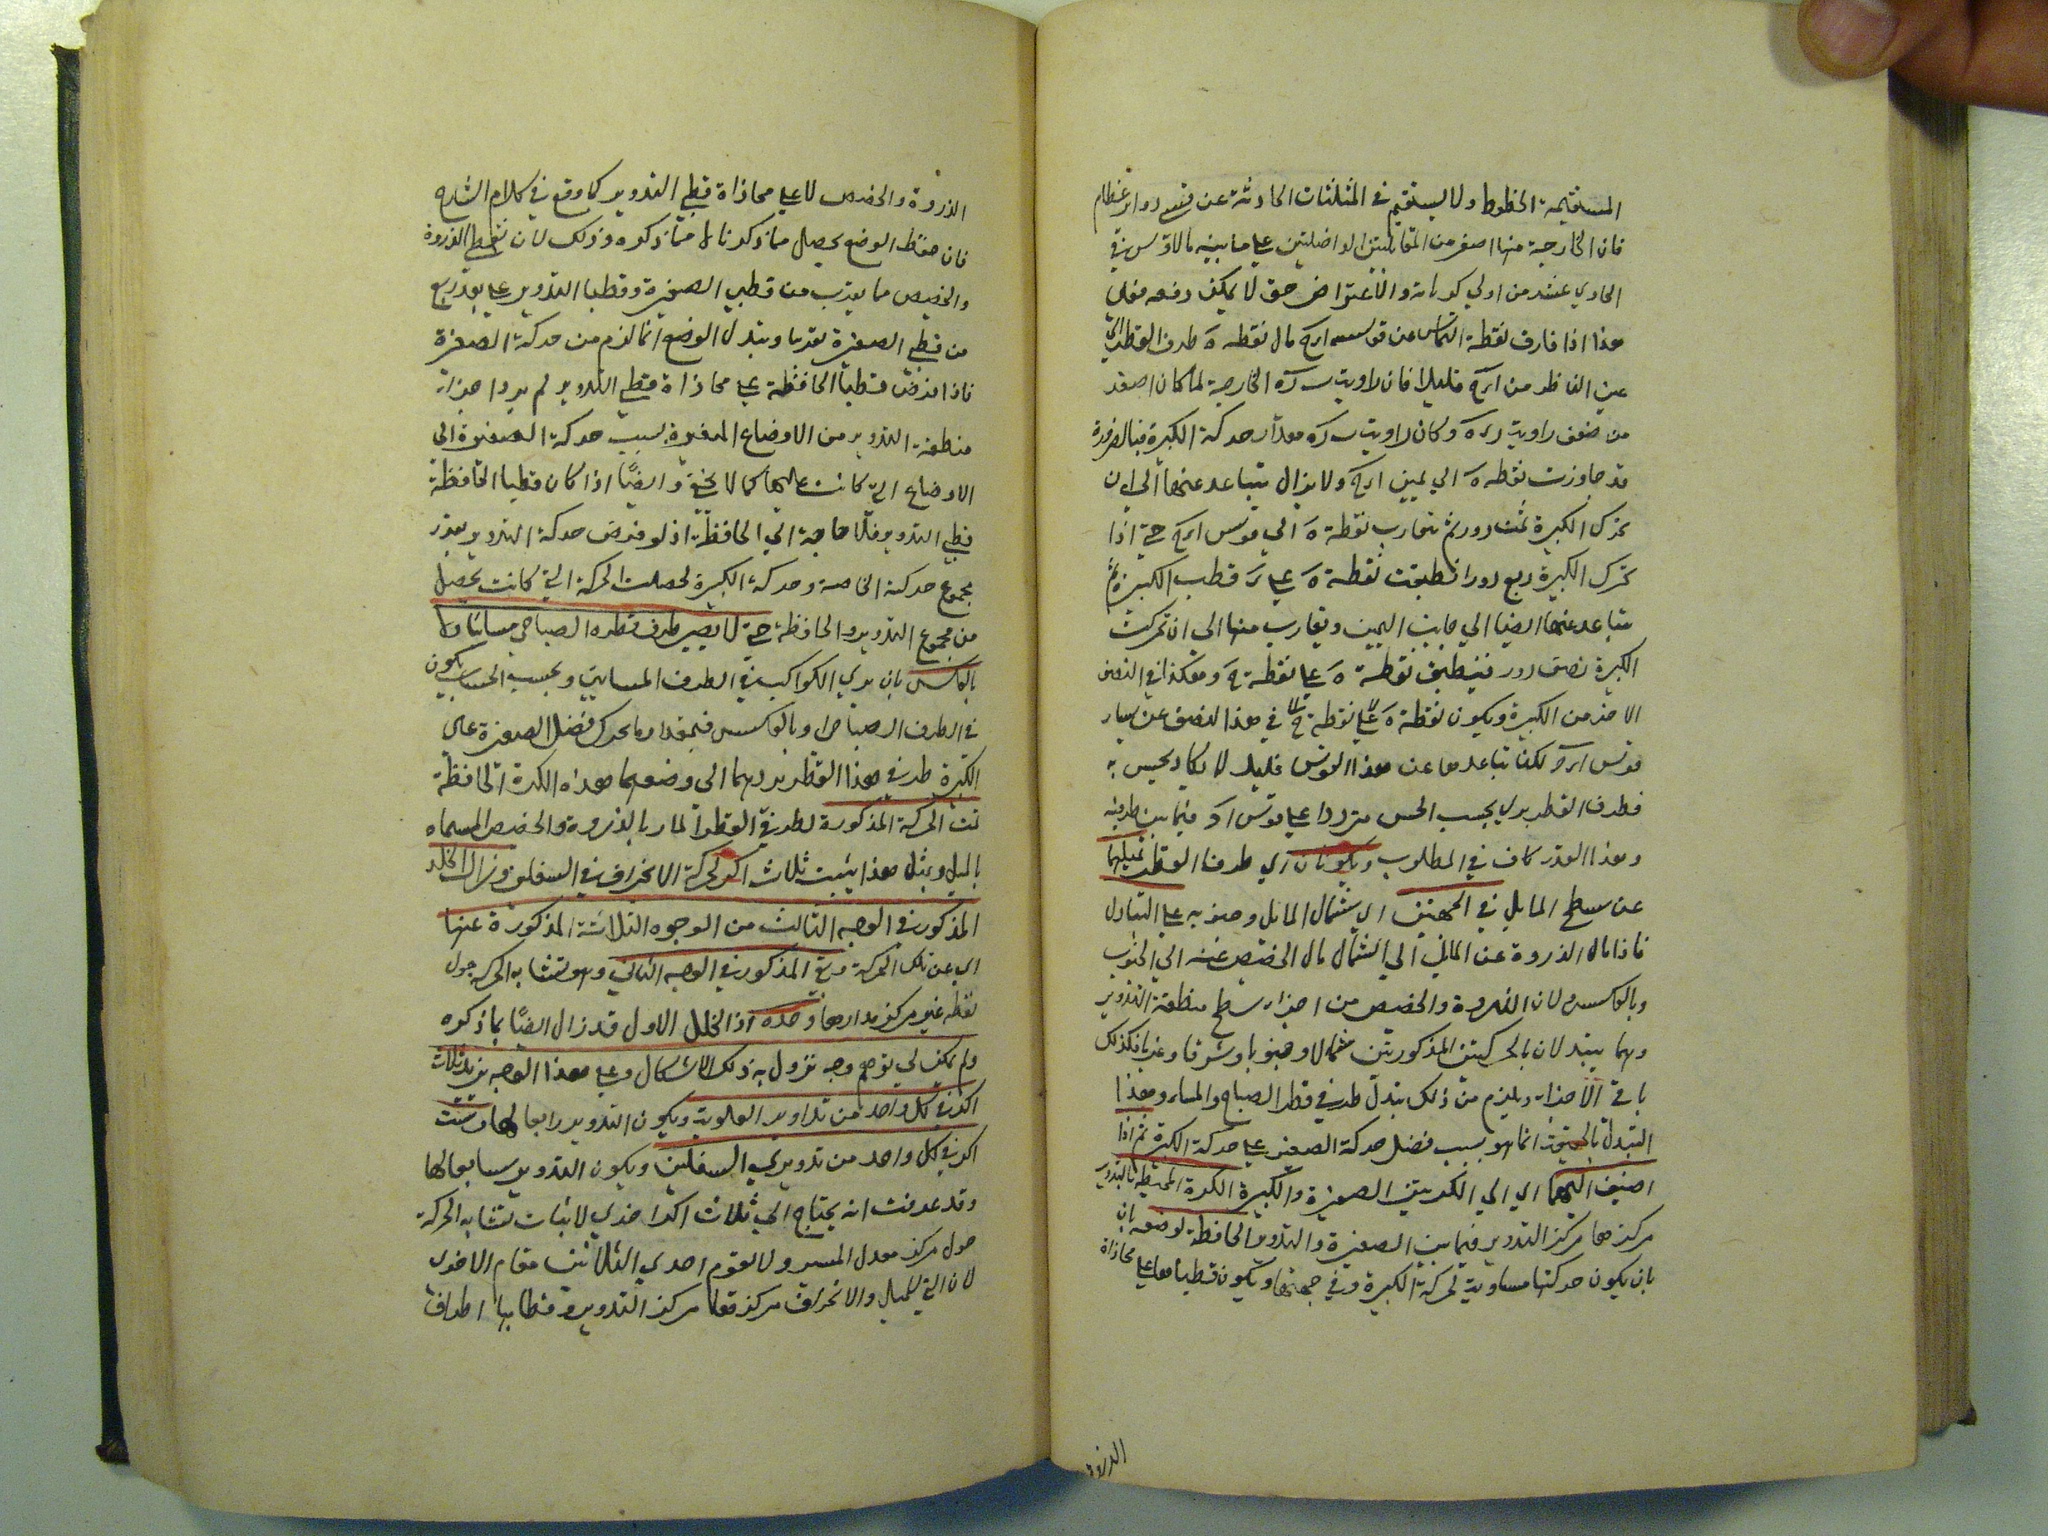 المستقيمة الخطوط ولا يستقيم في المثلثات الحادثة عن قسي دوائر عظام
فان الخارجة منها اصغر من المتقابلتين الداخلتين على ما بينه مالاناوس في
الحادي عشر من اولى كرياته والاعتراض حق لا يمكن دفعه فعلى
هذا اذا فارق نقطة التماس عن قوس ا ر ح مال نقطة ه طرف القطر الى
عين الناظر من ا ر ح قليلا فان زاوية ب ر ه الخارجة لما كان اصغر
من ضعف زاوية د ر ه وكان زاوية ب ر ه مقدار حركة الكبيرة فبالضرورة
قد جاوزت نقطة ه الى يمين ا ر ح ولا يزال يتباعد عنها الى ان
تحرك الكبيرة ثمن دور ثم يتقارب نقطة ه الى قوس ا ر ح حتى اذا
تحرك الكبيرة ربع دور انطبقت نقطة ه على ر قطب الكبيرة ثم
يتباعد عنها ايضا الى جانب اليمين ويتقارب منها الى ان تحركت
الكبيرة نصف دور فينطبق نقطة ه على نقطة ح وهكذا في النصف
الاخر من الكبيرة ويكون نقطة ه على نقطة ح في هذا النصف عن يسار
قوس ا ر ح لكن تباعدها عن هذا القوس قليل لا يكاد يحس به
فطرف القطر يرى بحسب الحس مترددا على قوس ا ح فيما بين طرفيه
وهذا القدر كاف في المطلوب ويكونان اى طرفا القطر بميلهما
عن سطح المايل في الجهتين اى شمال المائل وجنوبه على التبادل
فاذا مال الذروة عن المائل الى الشمال مال الحضيض عنه الى الجنوب
وبالعكس ولان الذروة والحضيض من اجزاء سطح منطقة التدوير
وهما يتبدلان بالحركتين المذكورتين شمالا وجنوبا وشرقا وغربا فكذلك
باقي الاجزاء ويلزم من ذلك تبدل طرفي قطر الصباح والمساء وهذا
التبدل بالحقيقة انما هو بسبب فضل حركة الصغيرة على حركة الكبيرة ثم اذا
اضيف اليهما اى الى الكرتين الصغيرة والكبيرة الكرة المحيطة بالتدوير
مركزها مركز التدوير فيما بين الصغيرة والتدوير الحافظة لوضعه بان
بان يكون حركتها مساوية لحركة الكبيرة وفي جهتها ويكون قطباها على محاذاة
الذروة
الذروة والحضيض لا على محاذاة قطبي التدوير كما وقع في كلام الشارح
فان حفظ الوضع يحصل مما ذكرنا لا مما ذكره وذلك لان نقطتي الذروة
والحضيض مما يقرب من قطبي الصغيرة وقطبا التدوير على بعد ربع
من قطبي الصغيرة تقريبا وتبدل الوضع انما لزم من حركة الصغيرة
فاذا فرض قطبا الحافظة على محاذاة قطبي التدوير لم يرد اجزاء
منطقة التدوير من الاوضاع المتغيرة بسبب حركة الصغيرة الى
الاوضاع التي كانت عليها كما لا يخفى وايضا اذا كان قطبا الحافظة
قطبي التدوير فلا حاجة الى الحافظة اذ لو فرض حركة التدوير بقدر
مجموع حركة الخاصة وحركة الكبيرة لحصلت الحركة التي كانت يحصل
من مجموع التدوير والحافظة حتى لا يصير طرف قطره الصباحي مسائيا ولا
بالعكس بان يرى الكواكب في الطرف المسايى وبحسب الحساب يكون
في الطرف الصباحي او بالعكس فبمقدار ما يحرك فضل الصغيرة على
الكبيرة طرفي هذا القطر يردهما الى وضعهما هذه الكرة الحافظة
تمت الحركة المذكورة لطرفي القطر المار بالذروة والحضيض المسماه
بالميل وبمثل هذا يثبت ثلاث اكر لحركة الانحراف في السفلين وزال الخلل
المذكور في الوجه الثالث من الوجوه الثلاثة المذكورة عنها
اى عن تلك الحركة وبقي المذكور في الوجه الثاني وهو تشابه الحركة حول
نقطة غير مركز مدارها وحده اذ الخلل الاول قد زال ايضا بما ذكره
ولم يمكن لي توهم وجه يزول به ذلك الاشكال وعلى هذا الوجه يزيد ثلاث
اكر في كل واحد من تداوير العلوية ويكون التدوير رابعا لها وست
اكر في كل واحد من تدويري السفلين ويكون التدوير سابعا لها
وقد عرفت انه يحتاج الى ثلاث اكر اخرى لاثبات تشابه الحركة
حول مركز معدل المسير ولا يقوم احدى الثلاثتين مقام الاخرى
لان التي للميل والانحراف مركزها مركز التدوير وقطباها اطراف